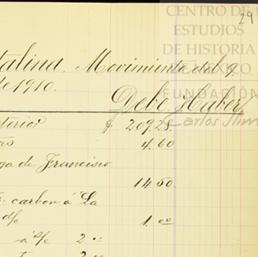 CENTRO DE
ESTUDIOS
DE HISTORIA
DE MÉXICO
FUNDACIÓN
Carlos Slim
29
talina. Movimiento del 9
de 1910.
Debe Haber
terior $ 20925
as 4.60
ga de Francisco
14.50
carbon á La
d/e 1.00
á d/e 2 00
2 "